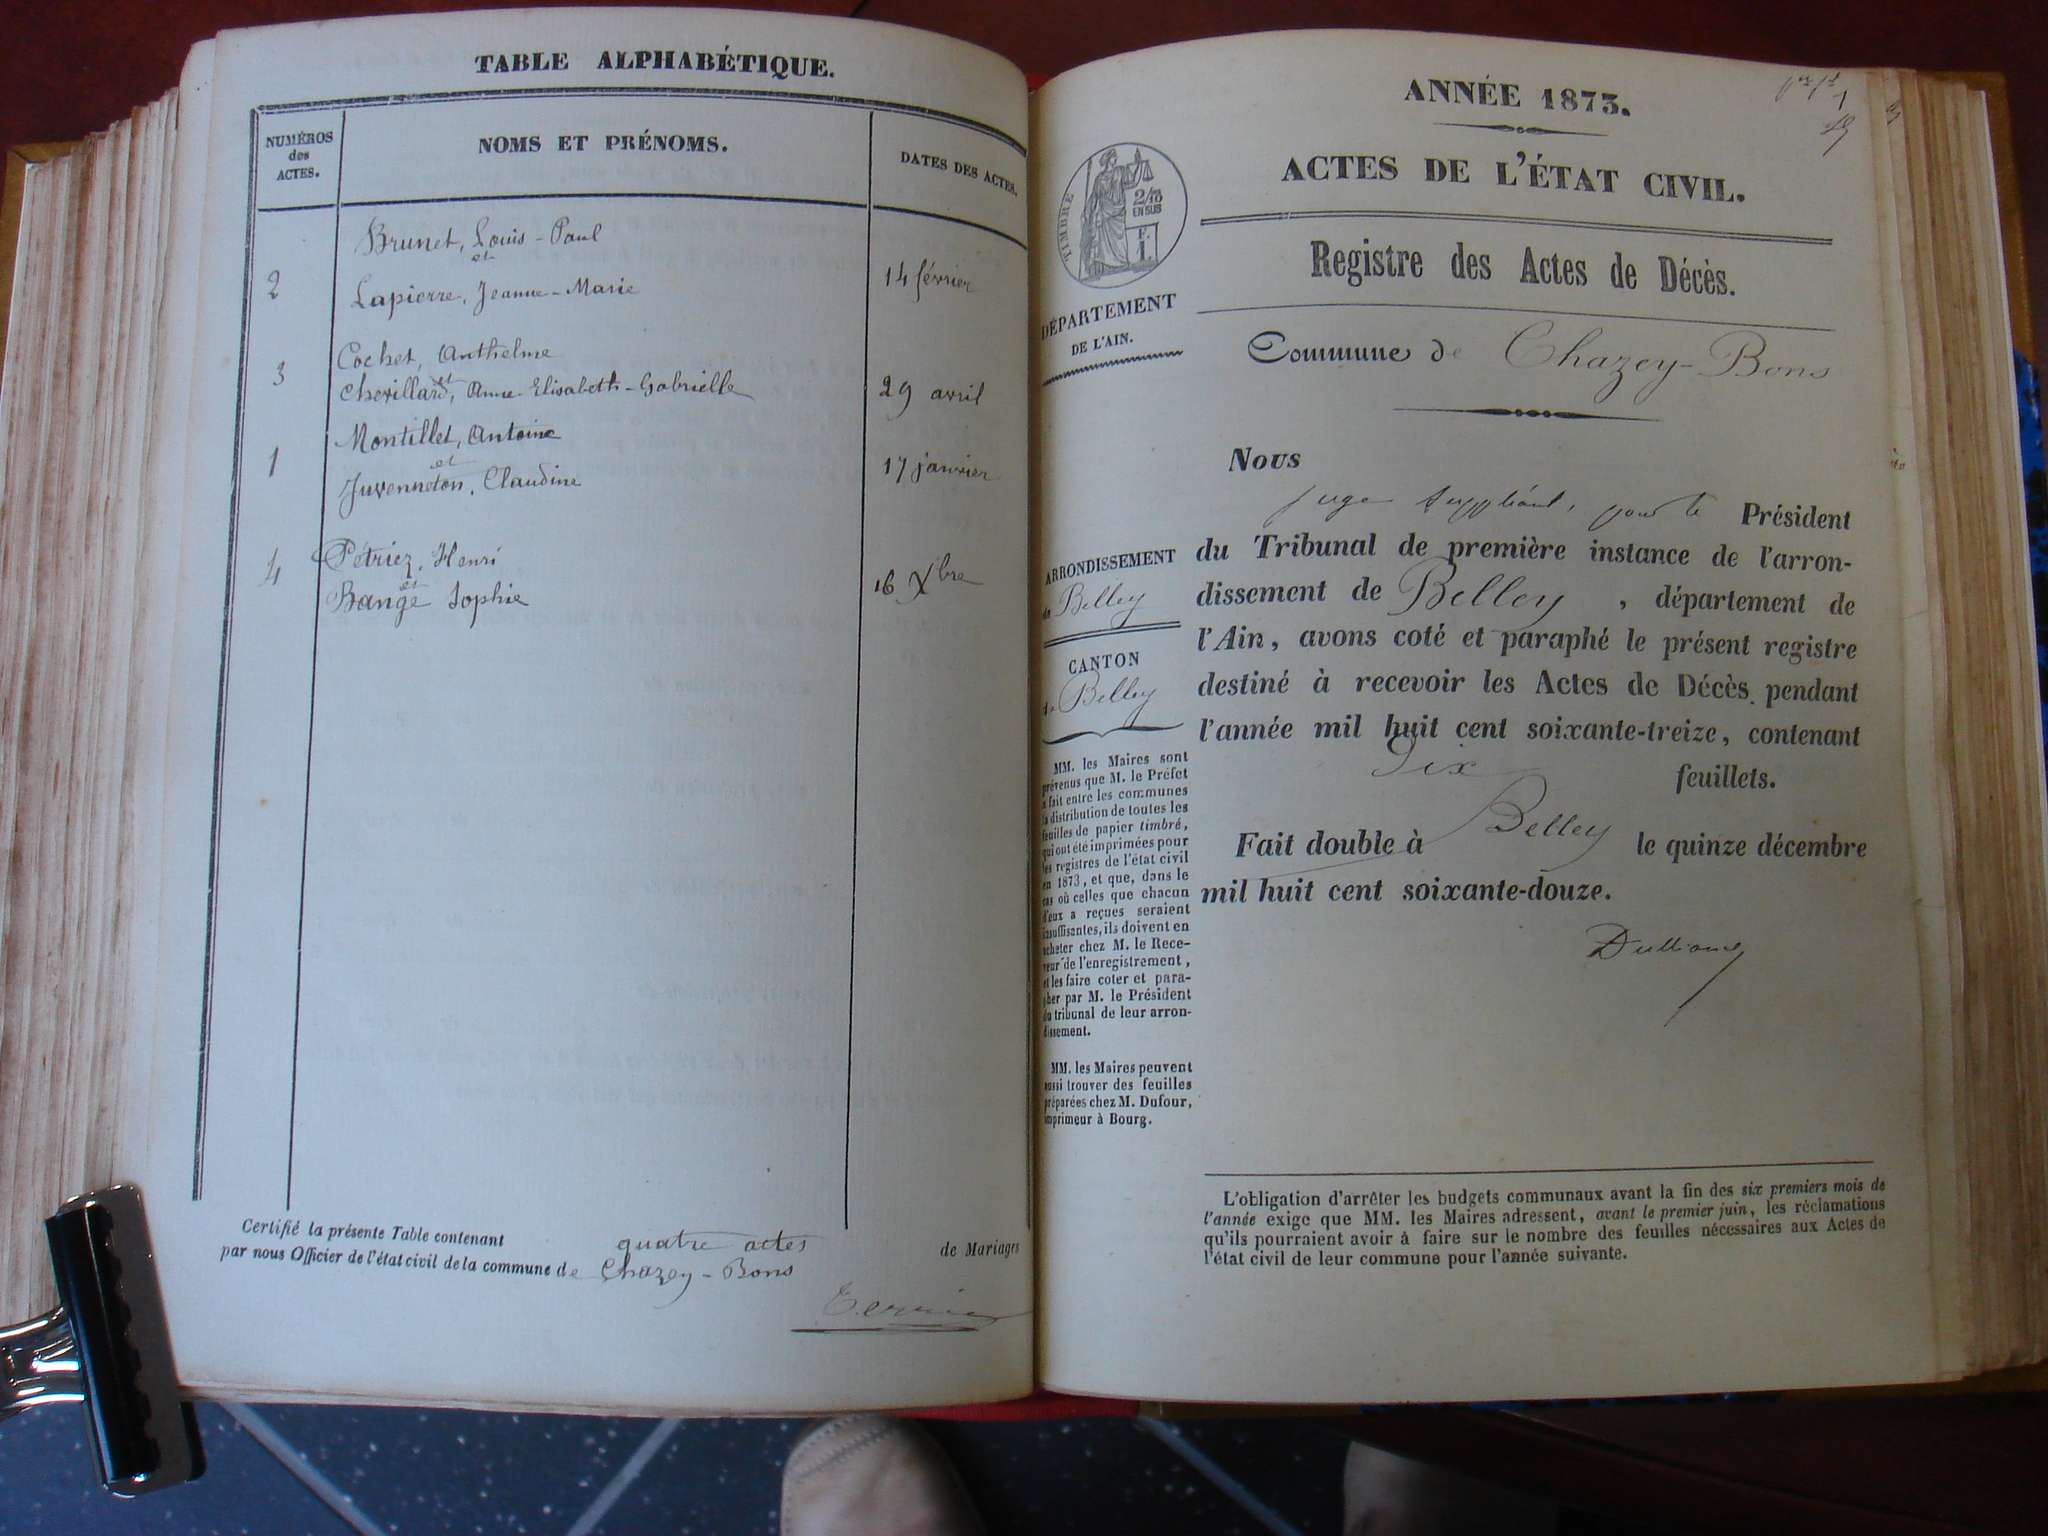 TABLE ALPHABÉTIQUE.
NUMÉROS
des
ACTES.
NOMS ET PRÉNOMS.
DATES DES ACTES.
Brunet, Louis-Paul
et
2 Lapierre, Jeanne-Marie 14 février
Cochet, Anthelme
et
3 Chevillard, Anne-Elisabeth-Gabrielle 29 avril
Montillet, Antoine
et
1 Juvenneton, Claudine 17 janvier
Pétriez, Henri
et
4 Bange Sophie 16 Xbre
Certifié la présente Table contenant quatre actes de Mariages
par nous Officier de l'état civil de la commune de Chazey-Bons
ANNÉE 1873.
ACTES DE L'ÉTAT CIVIL.
TIMBRE
2/10
EN SUS
F.
1.
Registre des Actes de Décès.
DÉPARTEMENT
DE L'AIN.
Commune de Chazey-Bons
Nous
juge suppléant, pour le Président
du Tribunal de première instance de l'arron-
dissement de Belley, département de
l'Ain, avons coté et paraphé le présent registre
destiné à recevoir les Actes de Décès pendant
l'année mil huit cent soixante-treize, contenant
Dix feuillets.
Fait double à Belley le quinze décembre
mil huit cent soixante-douze.
ARRONDISSEMENT
de Belley
CANTON
de Belley
MM. les Maires sont
prévenus que M. le Préfet
a fait entre les communes
la distribution de toutes les
feuilles de papier timbré,
qui ont été imprimées pour
les registres de l'état civil
en 1873, et que, dans le
cas où celles que chacun
d'eux a reçues seraient
insuffisantes, ils doivent en
acheter chez M. le Rece-
veur de l'enregistrement,
et les faire coter et para-
pher par M. le Président
du tribunal de leur arron-
dissement.
MM. les Maires peuvent
aussi trouver des feuilles
préparées chez M. Dufour,
imprimeur à Bourg.
L'obligation d'arrêter les budgets communaux avant la fin des six premiers mois de
l'année exige que MM. les Maires adressent, avant le premier juin, les réclamations
qu'ils pourraient avoir à faire sur le nombre des feuilles nécessaires aux Actes de
l'état civil de leur commune pour l'année suivante.